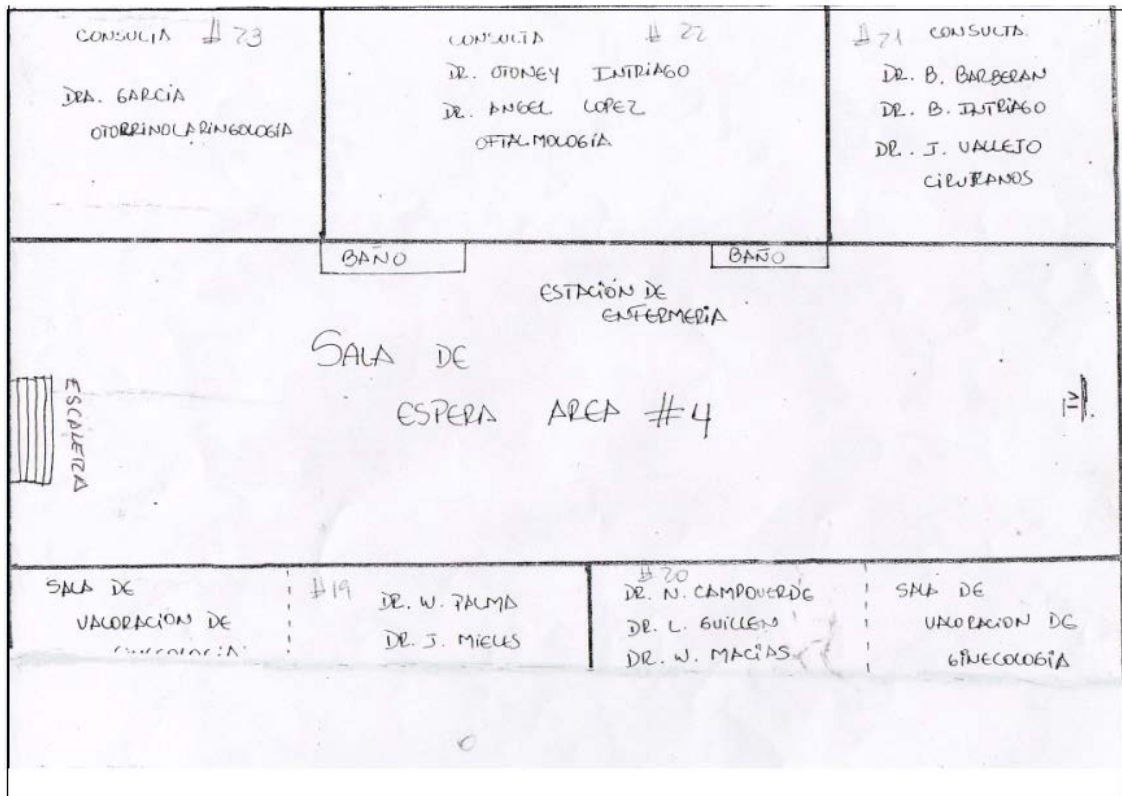 CONSULTA #23
DRA. GARCIA
OTORRINOLARINGOLOGIA
CONSULTA #22
DR. OTONEY INTRIAGO
DR. ANGEL LOPEZ
OFTALMOLOGÍA
#21 CONSULTA
DR. B. BARBERAN
DR. B. INTRIAGO
DR. J. VALLEJO
CIRUJANOS
BAÑO
BAÑO
ESTACIÓN DE
ENFERMERIA
SALA DE
ESPERA AREA #4
ESCALERA
TV
SALA DE
VALORACIÓN DE
#19
DR. W. PALMA
DR. J. MIELES
#20
DR. N. CAMPOVERDE
DR. L. GUILLEN
DR. W. MACÍAS
SALA DE
VALORACION DE
GINECOLOGÍA